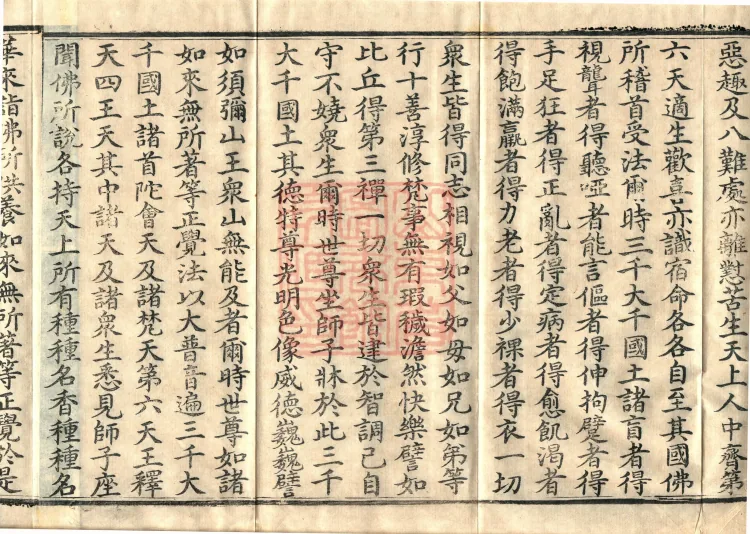 惡趣及八難處亦離懃苦生天上人中齊第
六天適生歡喜亦識宿命各各自至其國佛
所稽首受法爾時三千大千國土諸盲者得
視聾者得聽啞者能言傴者得伸拘躄者得
手足狂者得正亂者得定病者得愈飢渴者
得飽滿羸者得力老者得少裸者得衣一切
衆生皆得同志相視如父如母如兄如弟等
行十善淳修梵事無有瑕穢澹然快樂譬如
比丘得第三禪一切衆生皆逮於智調己自
守不嬈衆生爾時世尊坐師子牀於此三千
大千國土其德特尊光明色像威德巍巍譬
如須彌山王衆山無能及者爾時世尊如諸
如來無所著等正覺法以大普音遍三千大
千國土諸首陀會天及諸梵天第六天王釋
天四王天其中諸天及諸衆生悉見師子座
聞佛所說各持天上所有種種名香種種名
華來詣佛所供養如來無所著等正覺於是